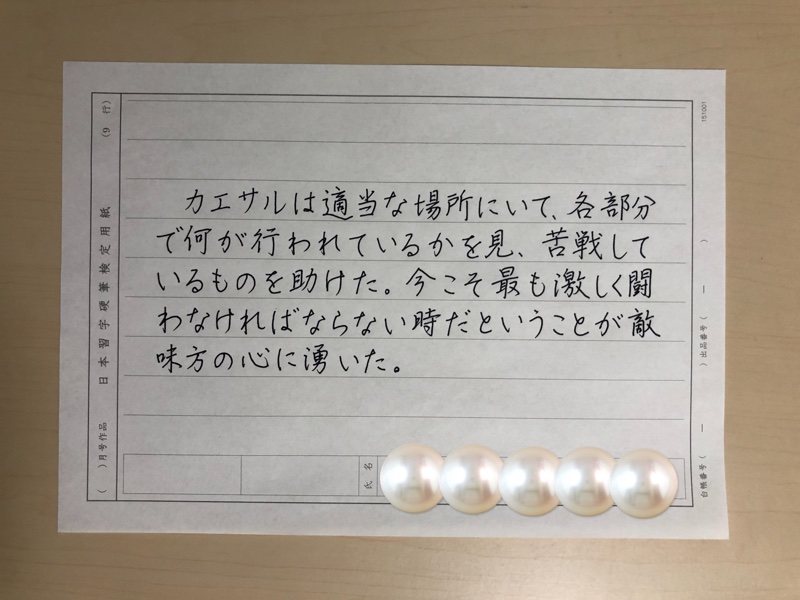 カエサルは適当な場所にいて、各部分
で何が行われているかを見、苦戦して
いるものを助けた。今こそ最も激しく闘
わなければならない時だということが敵
味方の心に湧いた。
氏名
日本習字硬筆検定用紙
(9 行)
( )月号作品
151001
)出品番号( ー )
台帳番号( ー